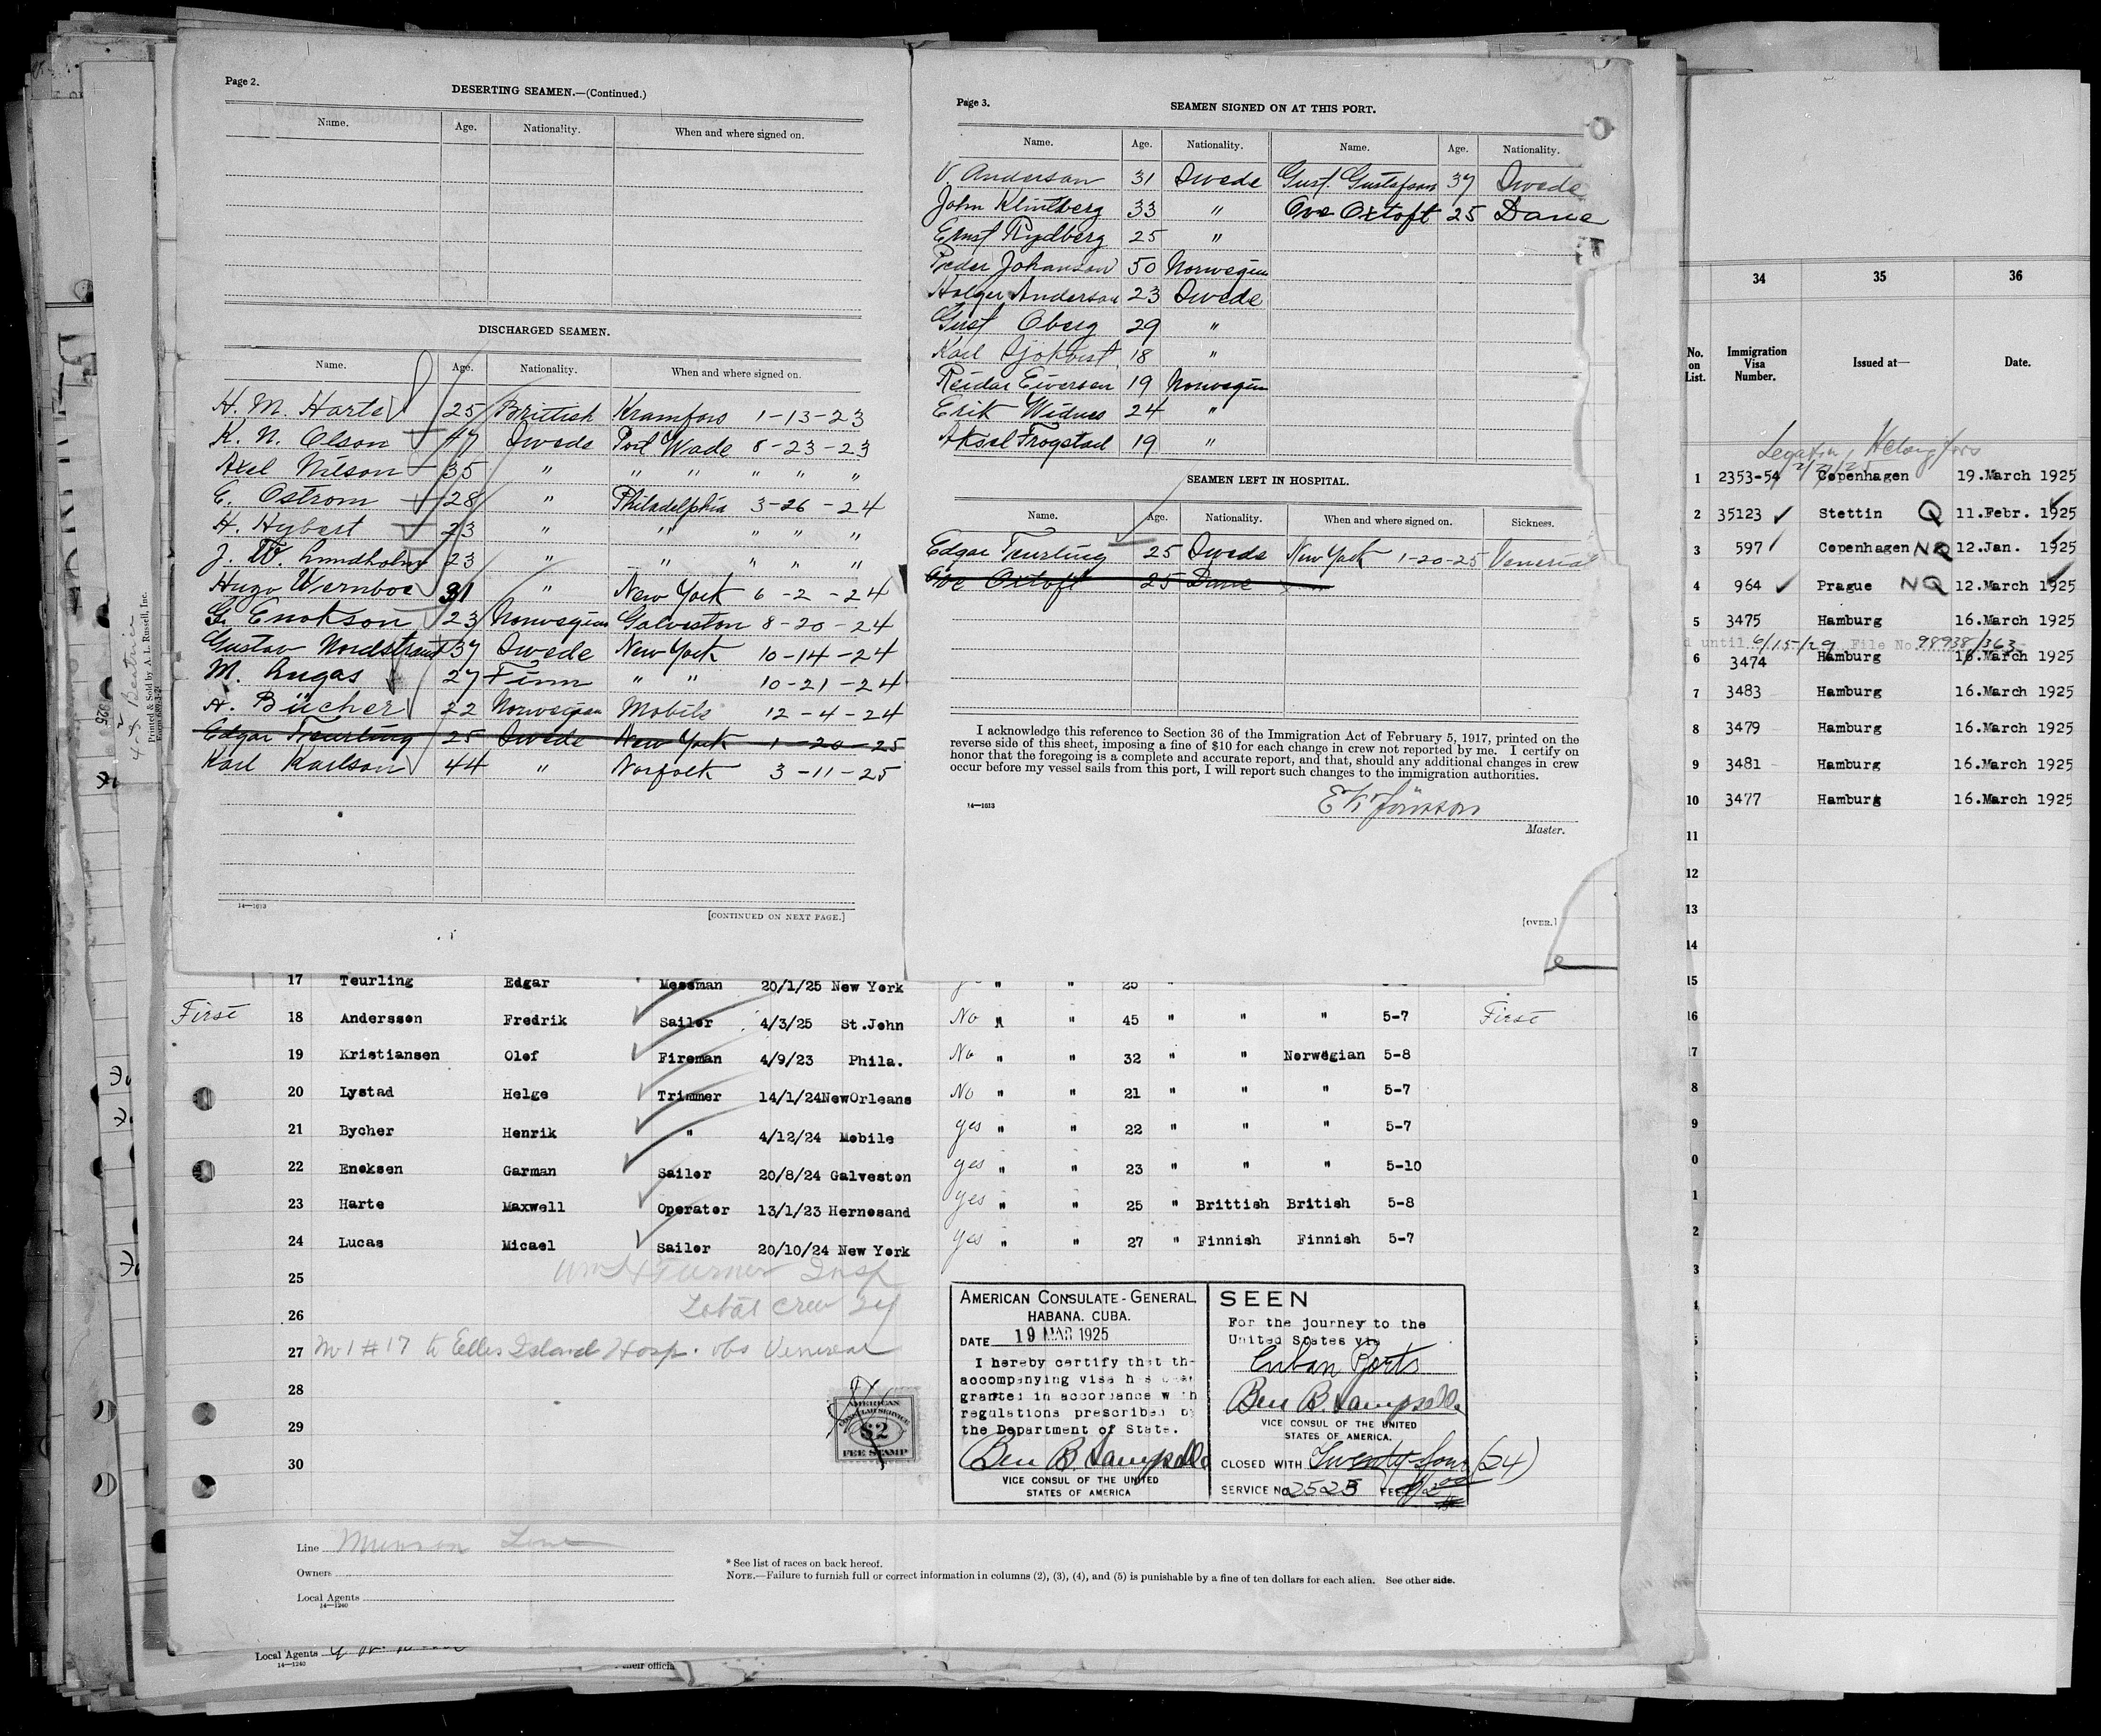 Page 2.
DESERTING SEAMEN.—(Continued.)
Name. Age. Nationality. When and where signed on.
DISCHARGED SEAMEN.
Name. Age. Nationality. When and where signed on.
H. M. Harte 25 Brittish Kramfors 1-13-23
K. N. Olson 47 Swede Port Wade 8-23-23
Axel Nilson 35 " " " " "
E. Ostrom 28 " Philadelphia 3-26-24
H. Hybert 23 " " " " "
J. W. Lundholm 23 " " " " "
Hugo Wernboe 31 " New York 6-2-24
G. Enokson 23 Norwegian Galveston 8-20-24
Gustav Nordstrand 37 Swede New York 10-14-24
M. Lugas 27 Finn " " 10-21-24
H. Bücher 22 Norwegian Mobile 12-4-24
Edgar Teurling 25 Swede New York 1-20-25
Karl Karlson 44 " Norfolk 3-11-25
14—1613
[CONTINUED ON NEXT PAGE.]
Page 3.
SEAMEN SIGNED ON AT THIS PORT.
Name. Age. Nationality. Name. Age. Nationality.
V. Anderson 31 Swede Gust. Gustafson 37 Swede
John Klintberg 33 " Ove Oxtoft 25 Dane
Ernst Rydberg 25 "
Peder Johanson 50 Norwegian
Holger Anderson 23 Swede
Gust Oberg 29 "
Karl Sjokvist 18 "
Reidar Eiversen 19 Norwegian
Erik Widnes 24 "
Aksel Frogstad 19 "
SEAMEN LEFT IN HOSPITAL.
Name. Age. Nationality. When and where signed on. Sickness.
Edgar Teurling 25 Swede New York 1-20-25 Venerial
Ove Oxtoft 25 Dane
I acknowledge this reference to Section 36 of the Immigration Act of February 5, 1917, printed on the
reverse side of this sheet, imposing a fine of $10 for each change in crew not reported by me. I certify on
honor that the foregoing is a complete and accurate report, and that, should any additional changes in crew
occur before my vessel sails from this port, I will report such changes to the immigration authorities.
14—1613
Master.
[OVER.]
17 Teurling Edgar Messman 20/1/25 New York " " 25 "
First 18 Anderssen Fredrik Sailor 4/3/25 St.John No " " 45 " " " 5-7 First
19 Kristiansen Olof Fireman 4/9/23 Phila. No " " 32 " " Norwegian 5-8
20 Lystad Helge Trimmer 14/1/24 NewOrleans No " " 21 " " " 5-7
21 Bycher Henrik " 4/12/24 Mobile yes " " 22 " " " 5-7
22 Eneksen Garman Sailor 20/8/24 Galveston yes " " 23 " " " 5-10
23 Harte Maxwell Operator 13/1/23 Hernosand yes " " 25 " Brittish British 5-8
24 Lucas Micael Sailor 20/10/24 New York yes " " 27 " Finnish Finnish 5-7
25 Turner Insp
26 Total crew 24
27 No 1 #17 to Ellis Island Hosp. obs Venereal
28
29
30
AMERICAN CONSULAR SERVICE
$2
FEE STAMP
AMERICAN CONSULATE-GENERAL,
HABANA. CUBA.
DATE 19 MAR 1925
I hereby certify that th-
accompanying visa has been
granted in accordance with
regulations prescribed by
the Department of State.
VICE CONSUL OF THE UNITED
STATES OF AMERICA
SEEN
For the journey to the
United States via
Cuban Ports
VICE CONSUL OF THE UNITED
STATES OF AMERICA.
CLOSED WITH Twenty-four (24)
SERVICE No. 2525 FEE
Line Munson Line
Owners
Local Agents
14—1240
* See list of races on back hereof.
NOTE.—Failure to furnish full or correct information in columns (2), (3), (4), and (5) is punishable by a fine of ten dollars for each alien. See other side.
Local Agents
14—1240
their officia
Printed & Sold by A. L. Russell, Inc.
34 35 36
No. on List. Immigration Visa Number. Issued at— Date.
Legation, Helsingfors
1 2353-54 Copenhagen 19.March 1925
2 35123 Stettin Q 11.Febr. 1925
3 597 Copenhagen NQ 12.Jan. 1925
4 964 Prague NQ 12.March 1925
5 3475 Hamburg 16.March 1925
d until 6/15/29 File No. 98938/363
6 3474 Hamburg 16.March 1925
7 3483 Hamburg 16.March 1925
8 3479 Hamburg 16.March 1925
9 3481 Hamburg 16.March 1925
10 3477 Hamburg 16.March 1925
11
12
13
14
15
16
17
8
9
0
1
2
3